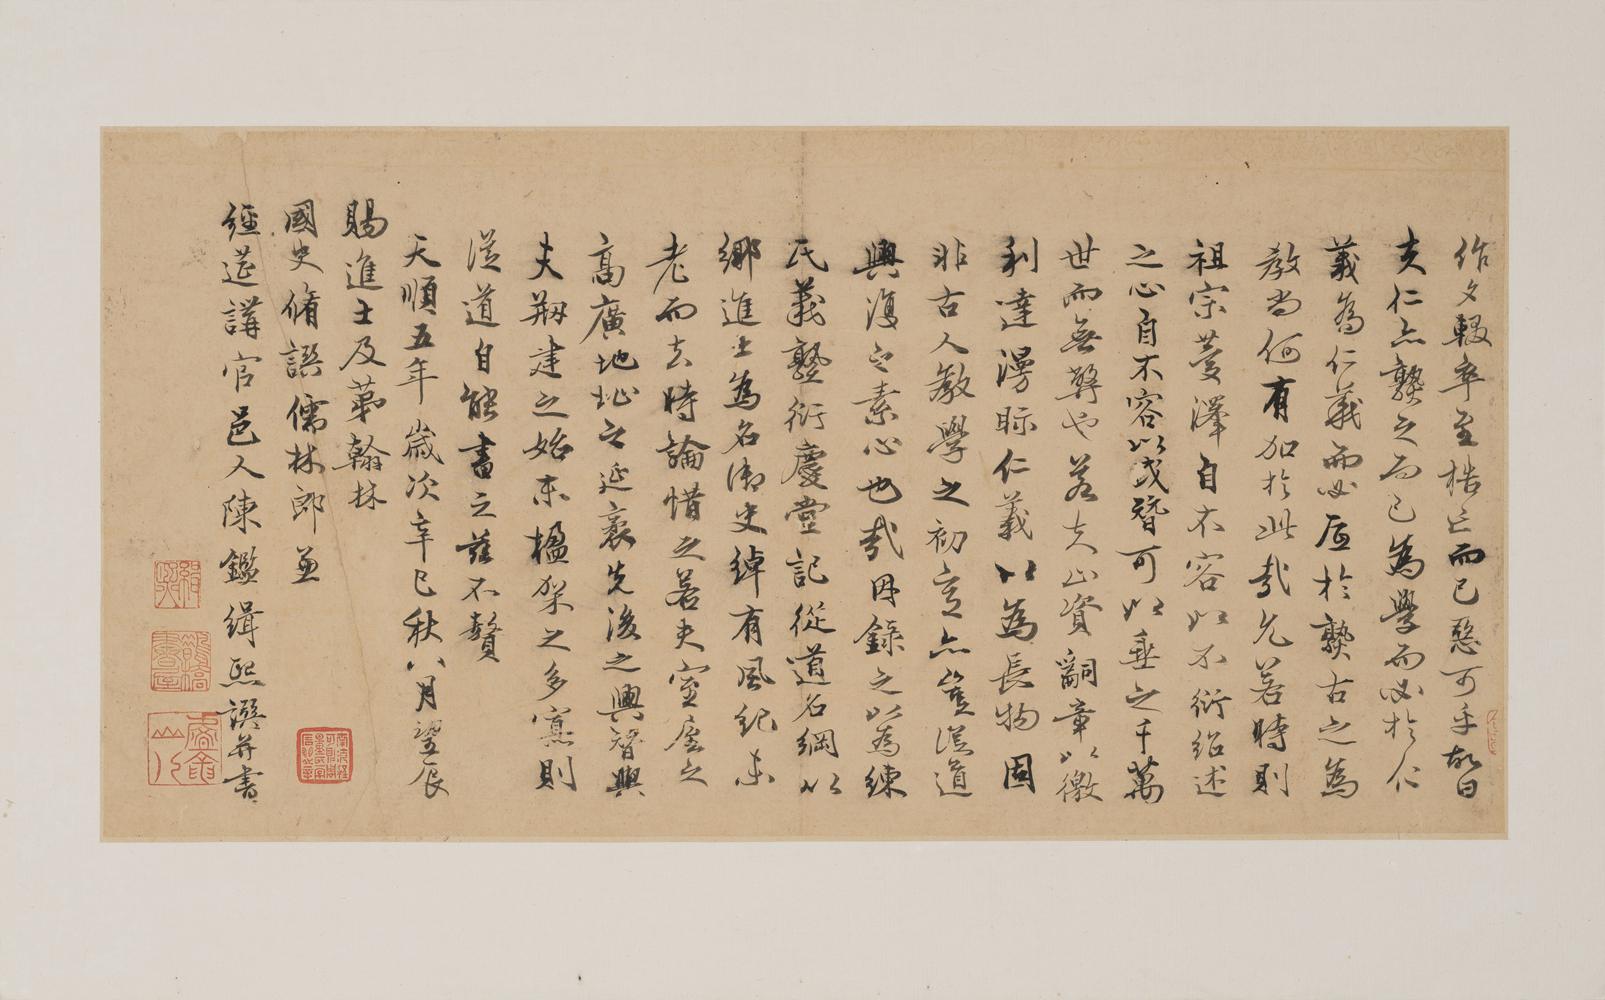 作夕輟卒至梏亡而已惡可乎故曰
夫仁亦熟之而已為學而必於仁
義為仁義而必原於塾古之為
教尚何有加於此哉允若時則
祖宗慶澤自不容以不衍紹述
之心自不容以或替可以垂之千萬
世而無弊也若夫止資辭章以徼
利達漫眎仁義以為長物固
非古人教學之初意亦豈從道
興復之素心也哉因錄之以為練
氏義塾衍慶堂記從道名綱以
鄉進士為名御史綽有風紀未
老而去時論惜之若夫室屋之
高廣地址之延袤先後之興替與
夫剏建之始末楹架之多寡則
從道自能書之茲不贅
天順五年歲次辛巳秋八月望辰
賜進士及第翰林
國史脩譔儒林郎兼
經筵講官邑人陳鑑緝熙譔并書